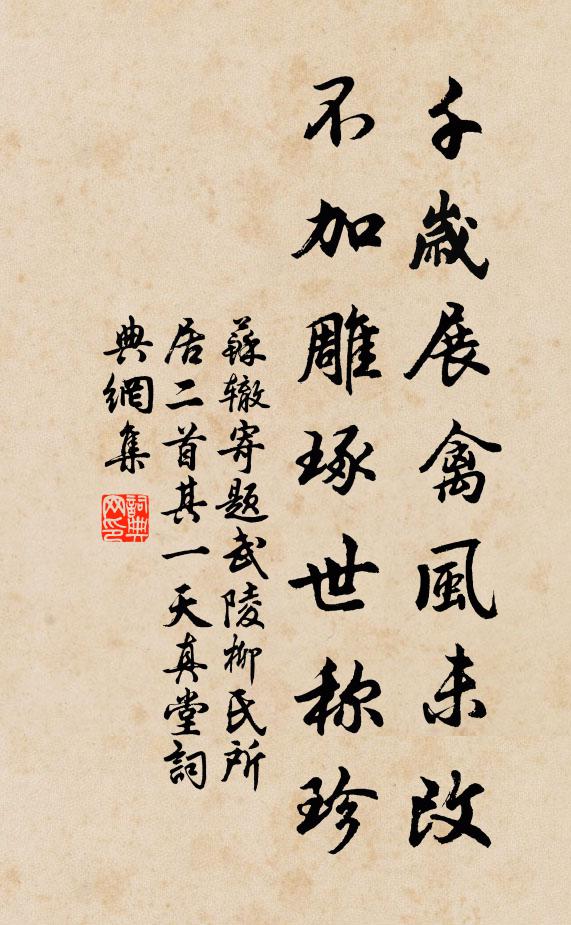 千歲展禽風未改
不加雕琢世称珍
蘇辙寄题武陵柳氏所
居二首其一天真堂詞
典網集
詞典
网印